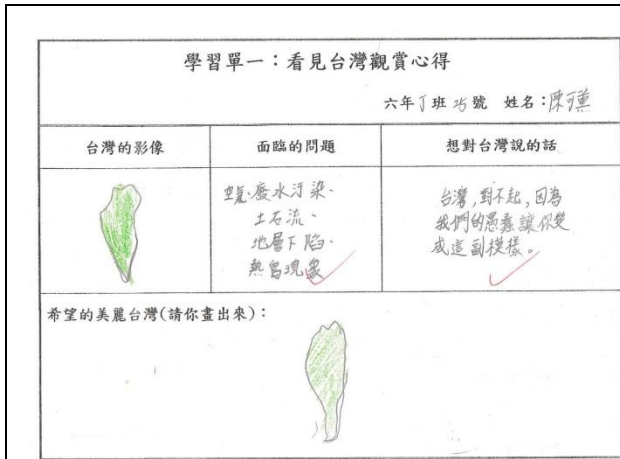 學習單一：看見台灣觀賞心得
六年丁班25號 姓名：陳
台灣的影像
面臨的問題
想對台灣說的話
空氣、廢水汙染、
土石流、
地層下陷、
熱島現象
台灣，對不起，因為
我們的愚蠢讓你變
成這副模樣。
希望的美麗台灣(請你畫出來)：